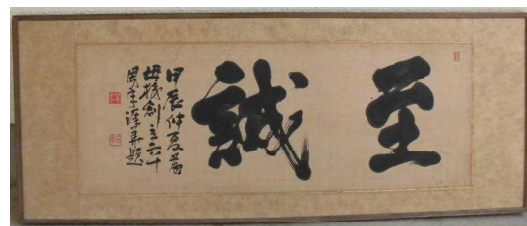 至誠
甲辰仲夏為
母校創立六十
周年